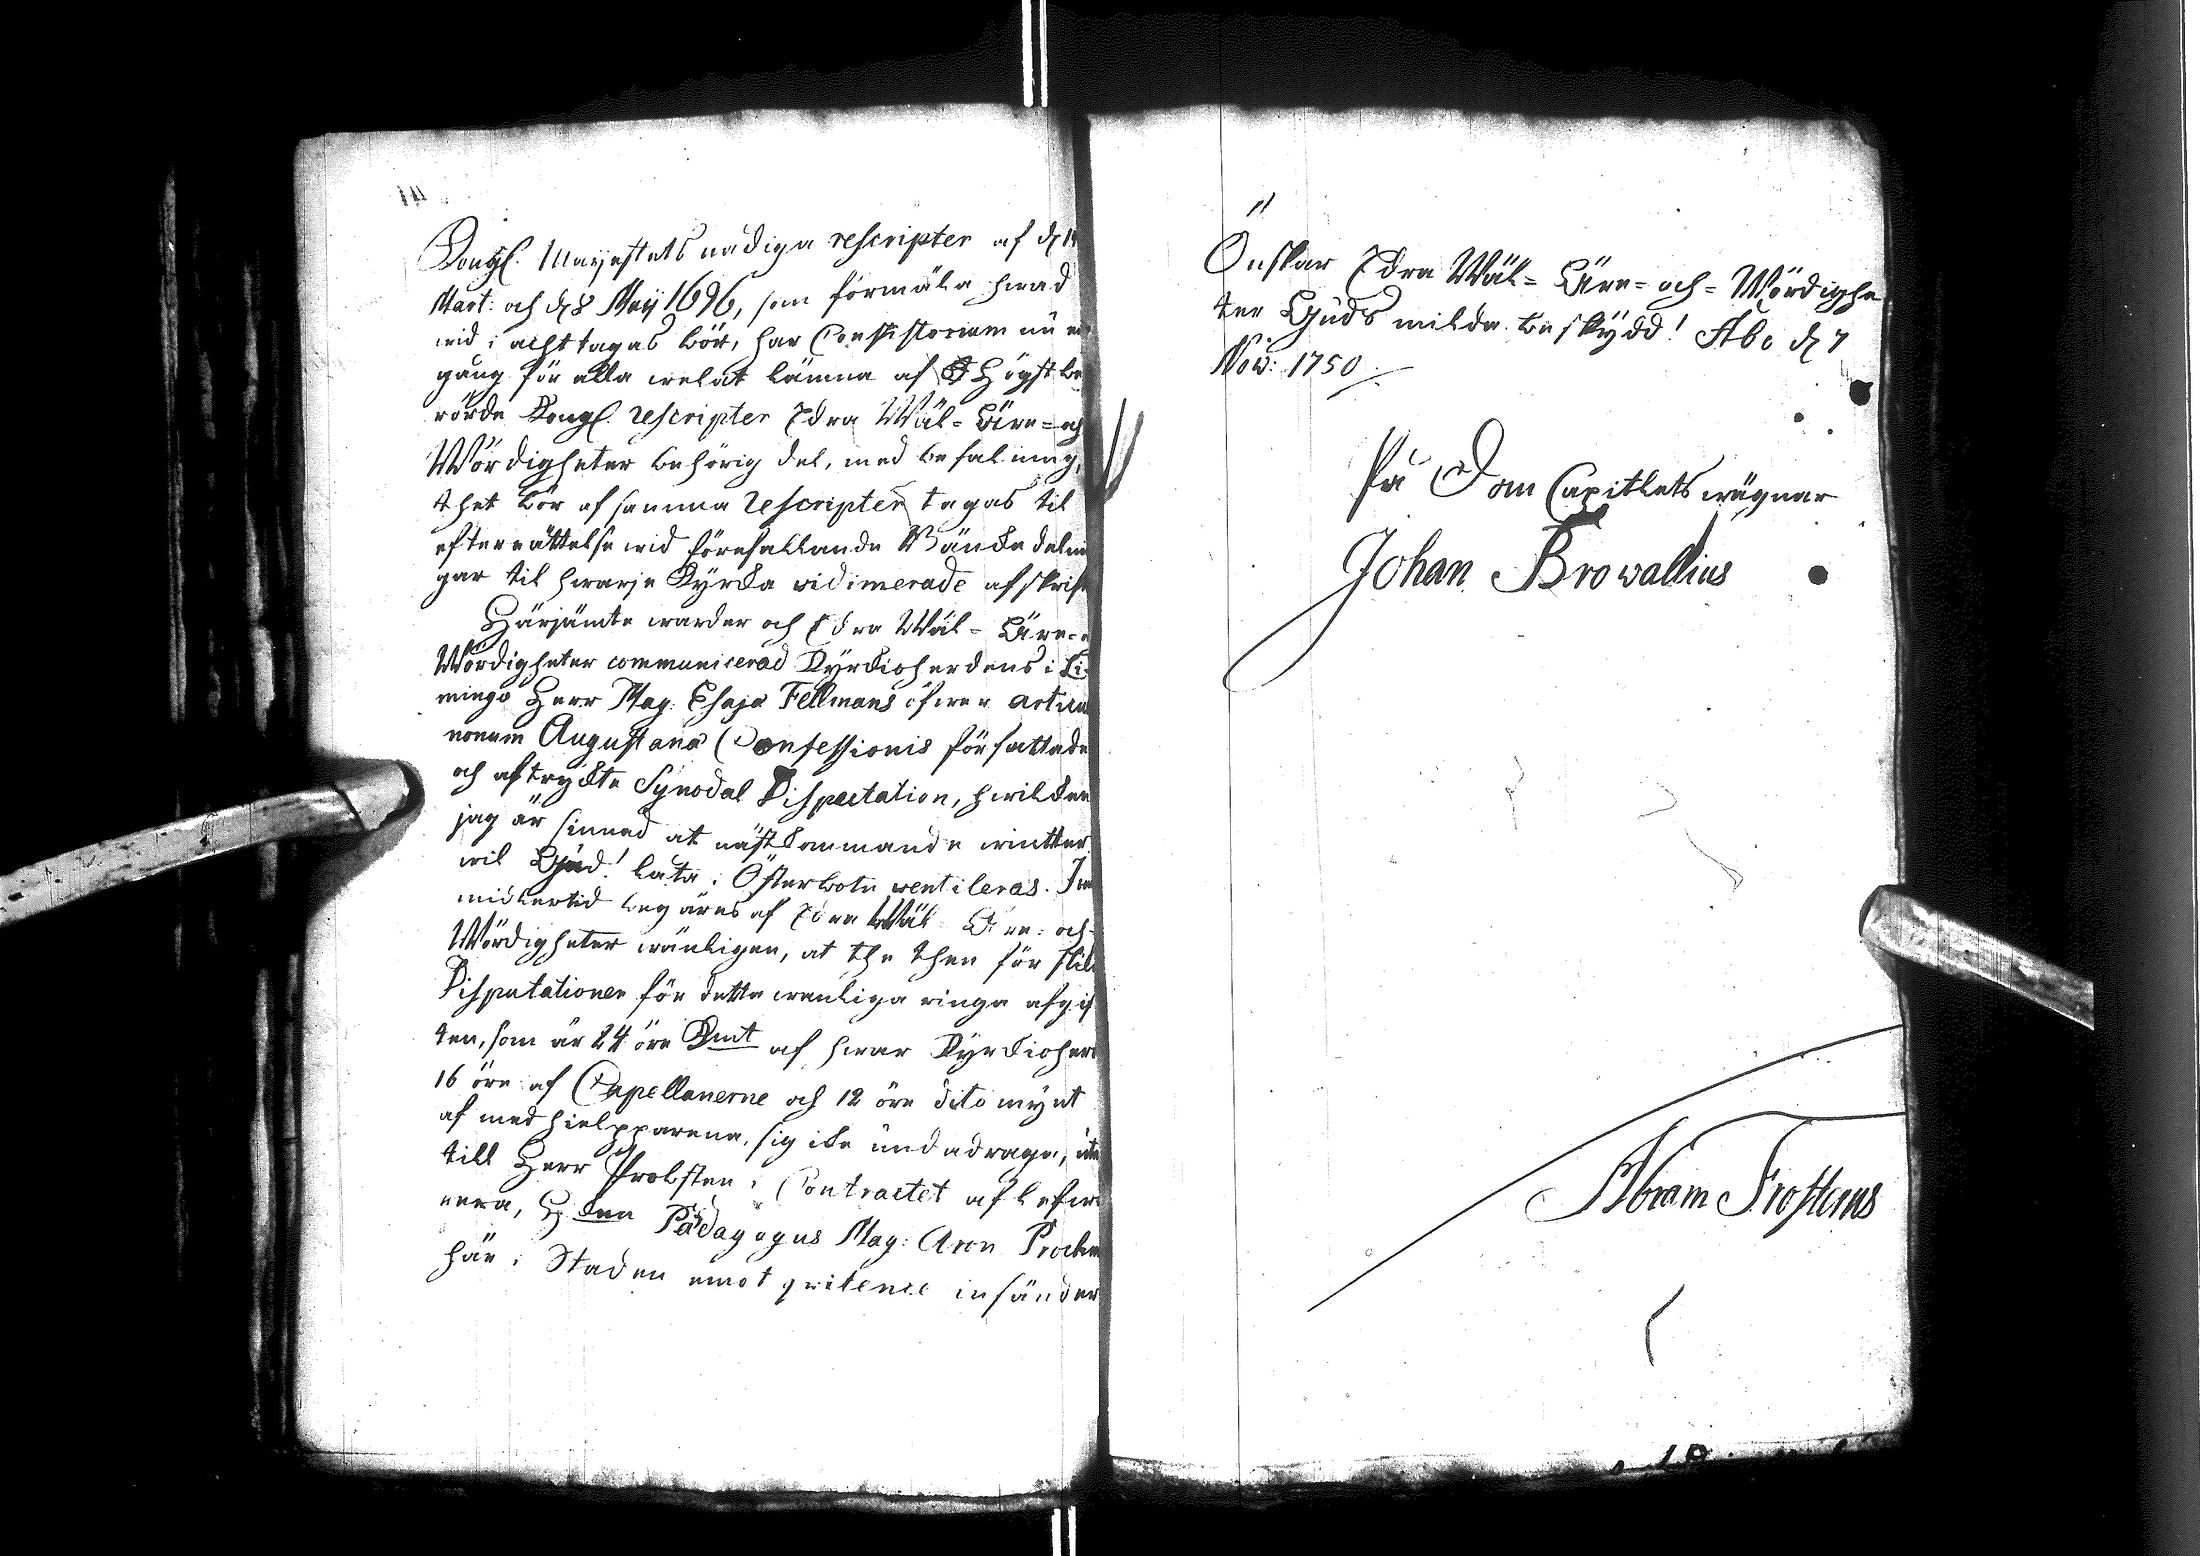 Kongl. Mayestets nådiga rescripter af d. 14
Mart: och d. 8 Maij 1696, som förmäla hwad
wid i acht tagas bör, har Consistorium nu en
gång för alla welat lämna af Högst be
rörde Kongl. rescripter Edra Wäl- Ähre- och
Wördigheter behörig del, med befalning,
thet bör af samma rescripter tagas til
efterrättelse wid förefallande Bänckedelnin
gar til hwarje Kyrcka vidimerade afskrift
Härjämte warder och Edra Wäl- Ähre-
Wördigheter communicerad Kyrckioherdens i Li
mingo Herr Mag: Esajæ Fellmans öfwer articu
nonum Augustanæ Confessionis författade
och aftryckte Synodal Disputation, hwilcken
jag är sinnad at nästkommande wintter
wil Gud! låta i Österbotn ventileras. Im
midlertid begäres af Edra Wäl- Ähre- och-
Wördigheter wänligen, at the then för slik
Disputationer för detta wanliga ringa afgif
ten, som är 24 öre Kmt af hwar Kyrckioher
16 öre af Capellanerne och 12 öre dito mynt
af medhielpparena, sig icke undadraga, uta
till Herr Probsten i Contractet aflefwe
rera, H. den Pædagogus Mag: Aron
här i Staden emot qvitence insänder
11
Önskar Edra Wäl- Ähre- och- Wördighe
ter Guds milda beskydd! Åbo d. 7
Now: 1750.
På Dom Capitlets wägnar
Johan Browallius
Abram Frosterus